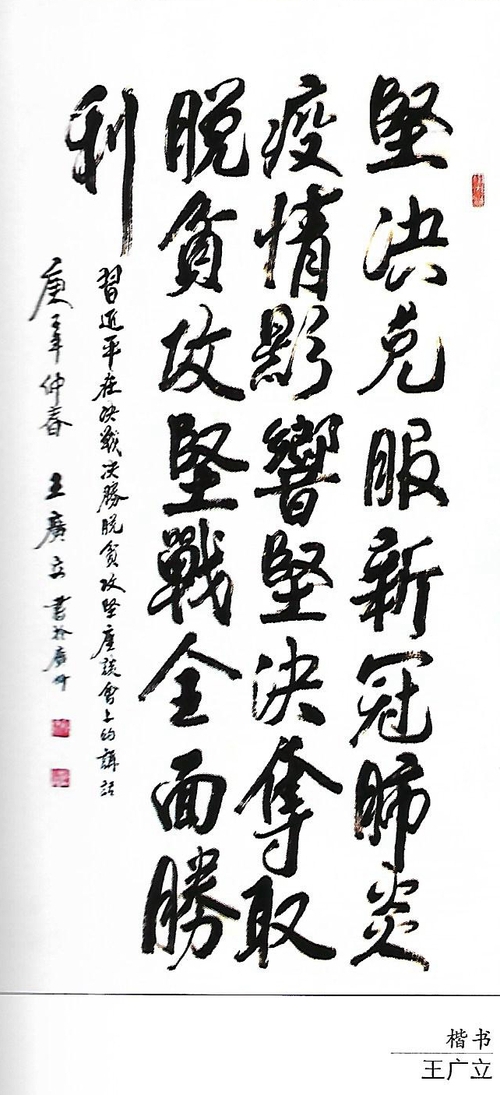 堅決克服新冠肺炎
疫情影響堅決奪取
脫貧攻堅戰全面勝
利
習近平在決戰決勝脫貧攻堅座談會上的講話
庚子年仲春 王廣立書於廣州
楷书
王广立